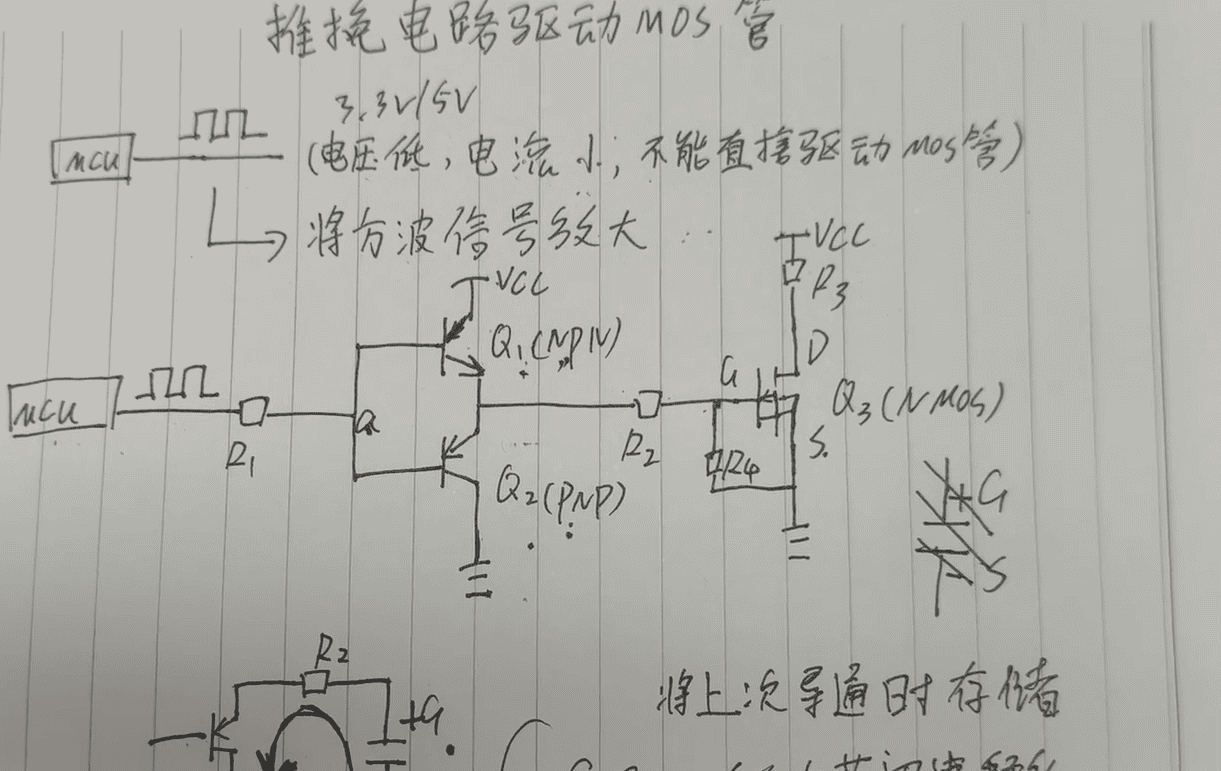 推挽电路驱动MOS管
3.3V/5V
MCU
(电压低,电流小,不能直接驱动MOS管)
将方波信号放大
VCC
R3
VCC
Q1(NPN)
D
G
MCU
Q3(NMOS)
a
R1
R2
S.
R4
Q2(PNP)
+G
-S
R2
+G
将上次导通时存储